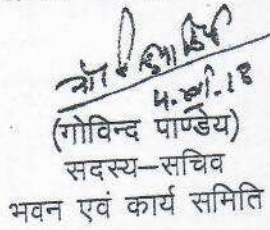 (गोविन्द पाण्डेय)
सदस्य–सचिव
भवन एवं कार्य समिति